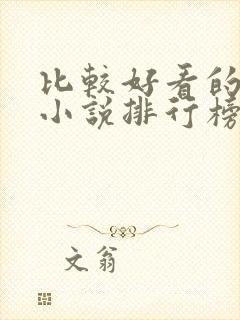 比較好看的
小說排行榜
文翁